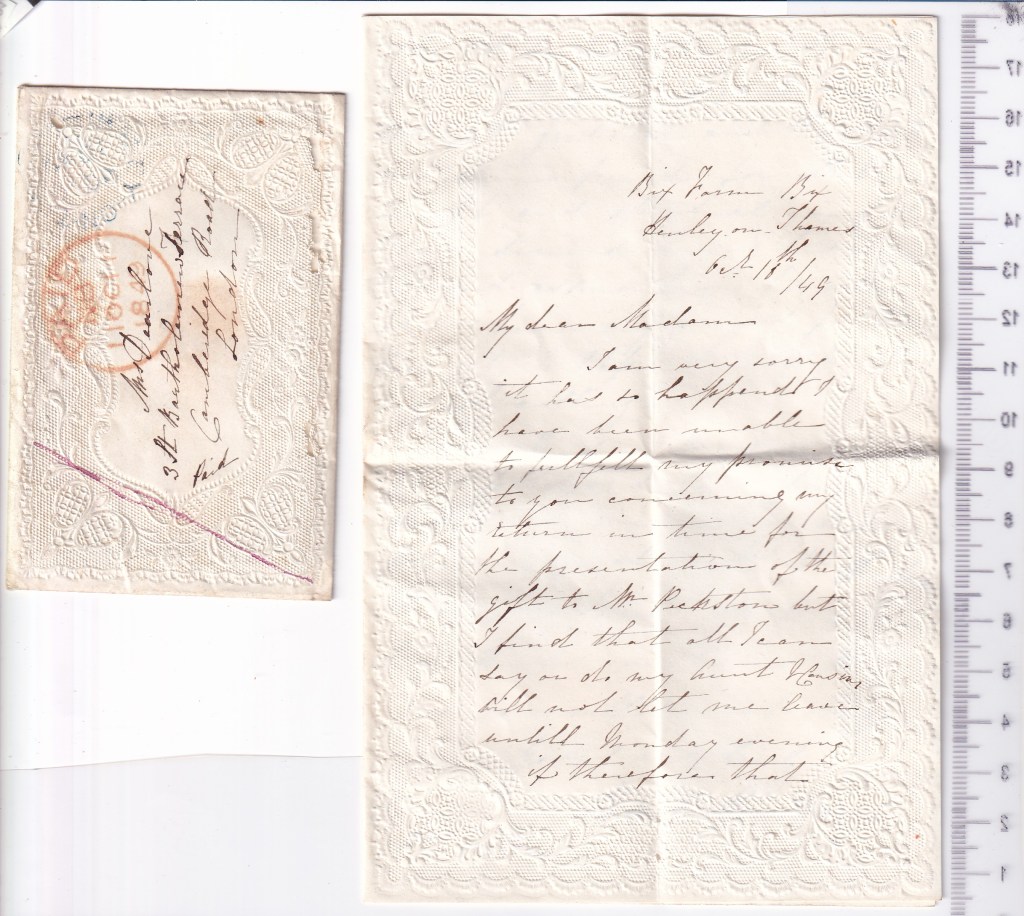 Mrs Dearlove
3 St Bartholomews Terrace
Cambridge Road
London
Paid
PAID
OC
1849
Bix Farm Bix
Henley on Thames
Octr 18th /49
My dear Madam
I am very sorry
it has so happend I
have been unable
to fullfill my promise
to you concerning my
return in time for
the presentation of the
gift to Mr Peckston but
I find that all I can
say or do my Aunt & Cousins
will not let me leave
untill Monday evening
if therefore that
18
17
16
15
14
13
12
11
10
9
8
7
6
5
4
3
2
1